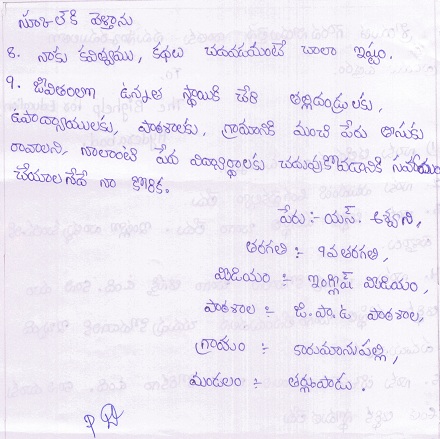 స్కూల్‌కి వెళ్తాను
8. నాకు కవిత్వము, కథలు చదవడమంటే చాలా ఇష్టం.
9. జీవితంలో ఉన్నత స్థాయికి చేరి తల్లిదండ్రులకు,
ఉపాధ్యాయులకు, పాఠశాలకు, గ్రామానికి మంచి పేరు తీసుకు
రావాలని, నాలాంటి పేద విద్యార్థులకు చదువుకోవడానికి సహాయం
చేయాలనేదే నా కోరిక.
పేరు :- యస్. అశ్విని,
తరగతి :- 9వ తరగతి,
మీడియం :- ఇంగ్లీష్ మీడియం,
పాఠశాల :- జి.పా.డ పాఠశాల,
గ్రామం :- కారుమానుపల్లి,
మండలం :- తర్లుపాడు.